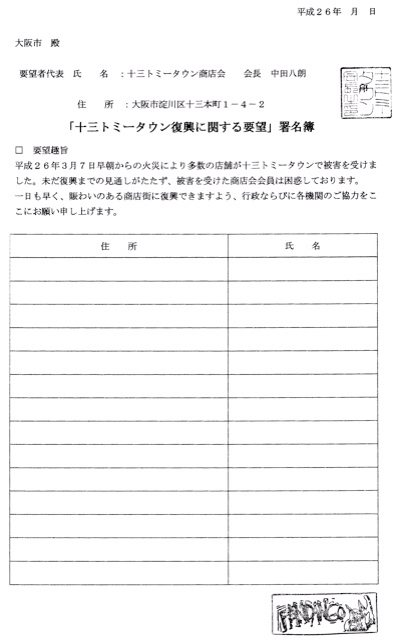 平成26年　月　日
大阪市　殿
要望者代表　氏　名　：十三トミータウン商店会　会長　中田八朗
住　所　：大阪市淀川区十三本町1－4－2
「十三トミータウン復興に関する要望」署名簿
□　要望趣旨
平成26年3月7日早朝からの火災により多数の店舗が十三トミータウンで被害を受けま
した。未だ復興までの見通しがたたず、被害を受けた商店会会員は困惑しております。
一日も早く、賑わいのある商店街に復興できますよう、行政ならびに各機関のご協力をこ
こにお願い申し上げます。
住　所　氏　名
FANDANGO